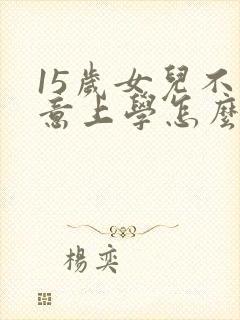 15歲女兒不
意上學怎麼
楊奕